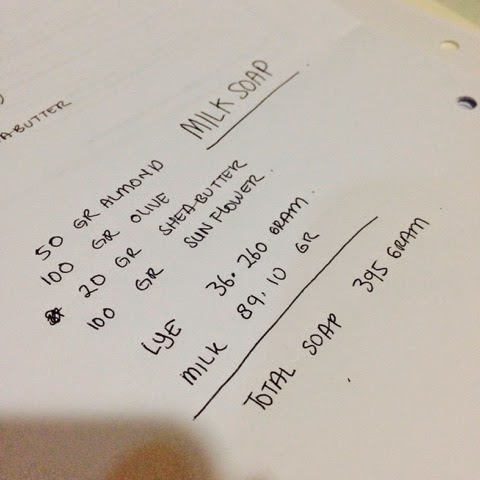 A-BUTTER
MILK SOAP
50 GR ALMOND
100 GR OLIVE
20 GR SHEA-BUTTER
100 GR SUNFLOWER.
LYE 36.260 GRAM
MILK 89.10 GR
TOTAL SOAP 395 GRAM